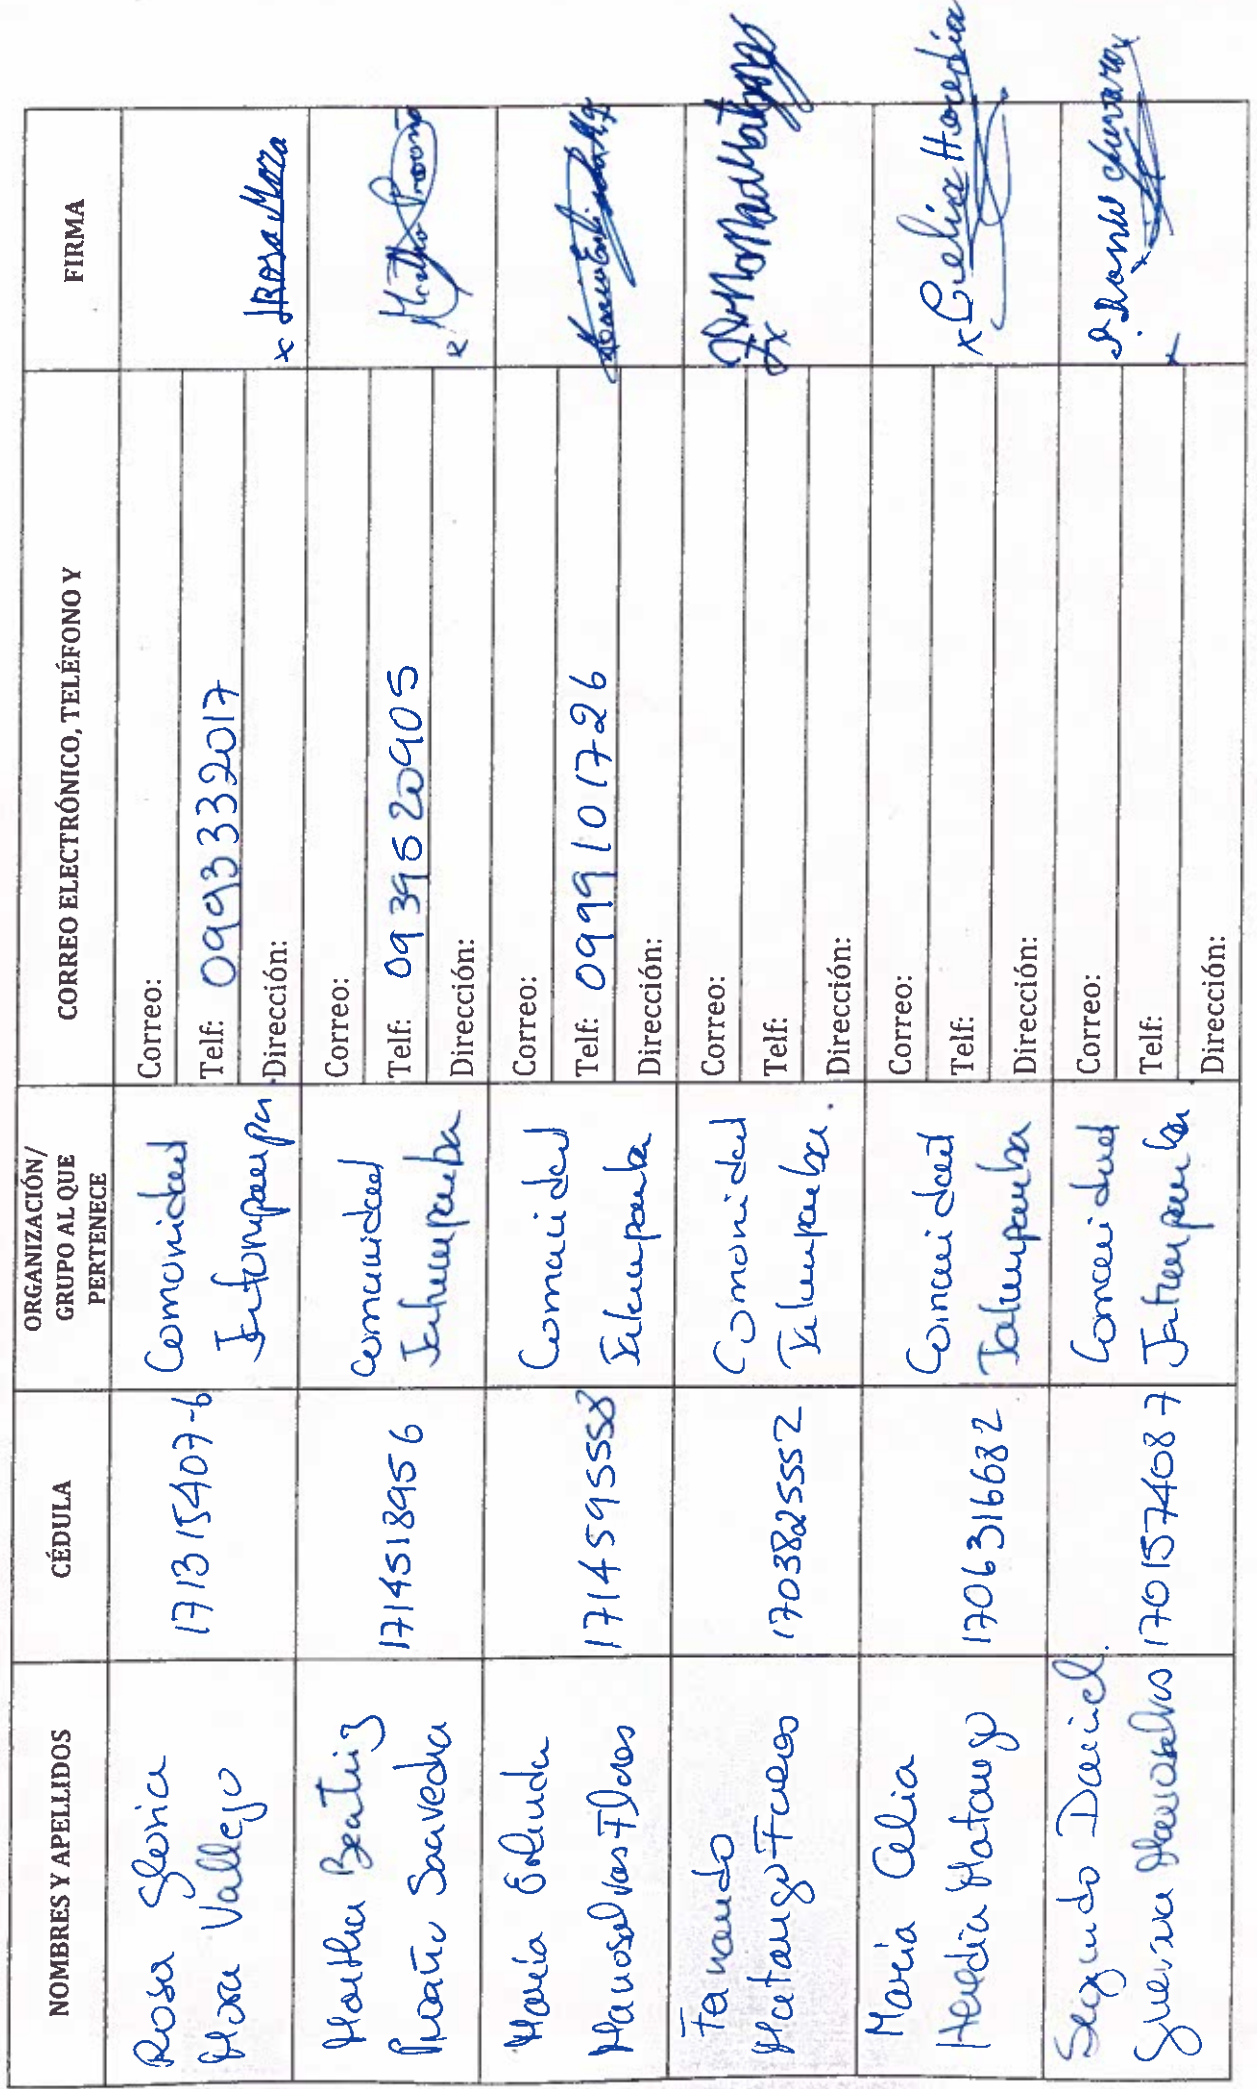 NOMBRES Y APELLIDOS
CÉDULA
ORGANIZACIÓN/
GRUPO AL QUE
PERTENECE
CORREO ELECTRÓNICO, TELÉFONO Y
FIRMA
Rosa Gloria
Mora Vallejo
171315407-6
Comunidad
Correo:
Telf: 0993332017
Dirección:
x Rosa Mora
Martha Beatriz
Proaño Saavedra
1714518956
Comunidad
Correo:
Telf: 0939520905
Dirección:
Martha Proaño
María Erlinda
Manosalvas Flores
Comunidad
Correo:
Telf: 0999101726
Dirección:
Fernando
Matango
1703825552
Comunidad
Correo:
Telf:
Dirección:
María Celia
Heredia Matango
1706316682
Comunidad
Correo:
Telf:
Dirección:
x Celia Heredia
Segundo Daniel
Guevara Manosalvas
1701574087
Comunidad
Correo:
Telf:
Dirección: